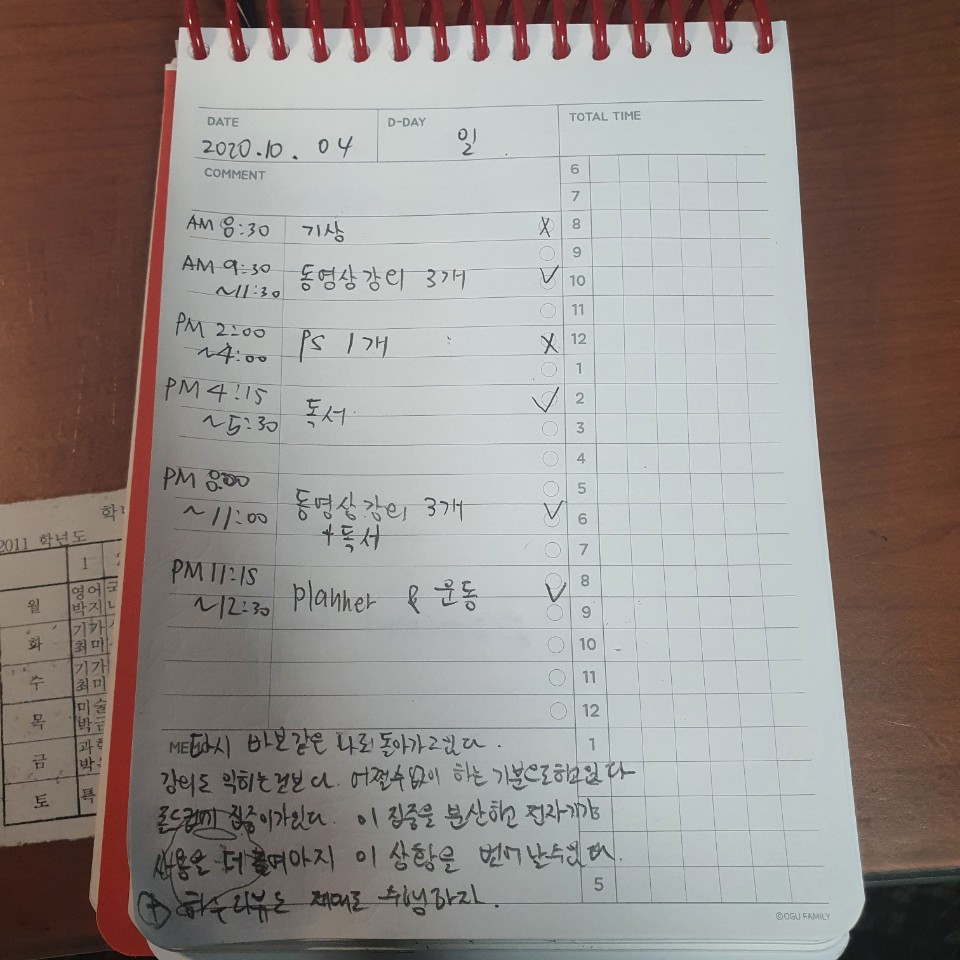 DATE
2020.10.04
D-DAY
일
TOTAL TIME
COMMENT
AM 8:30 기상 X
AM 9:30 동영상강의 3개 ✓
~11:30
PM 2:00 PS 1개 X
~4:00
PM 4:15 독서 ✓
~5:30
PM 8:00
~11:00 동영상강의 3개 ✓
+독서
PM 11:15
~12:30 planner & 운동 ✓
6
7
8
9
10
11
12
1
2
3
4
5
6
7
8
9
10
11
12
1
5
다시 바보같은 나로 돌아가고있다.
강의도 익히는건보다. 어쩔수없이 하는 기분으로하고있다
집중이가있다. 이 집중을 분산하고 전자기기
사용을 더 줄여아지 이 상황을 벗어날수있다.
+ 하루 리뷰는 제대로 수행하자.
©OGU FAMILY
학
2011 학년도
1
월 영어
박지
화 기가
최미
수 기가
최미
목 미술
박금
금 과학
토